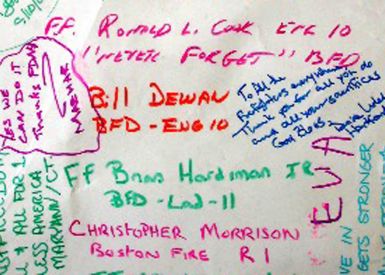 FF. RONALD L. COOK ENG 10
"NEVER FORGET" BFD
YES WE
CAN DO IT
THANKS FDNY
Bill DEWAN
BFD - ENG 10
To All de
firefighters everywhere
Thank you for all you do
and all your sacrifices
God Bless
FF Brian Hardiman JR
BFD - Lad - 11
CHRISTOPHER MORRISON
BOSTON FIRE R1
& ALL FOR 1
LESS AMERICA
MARCHAN/CT
E IN STRONGER
GETS